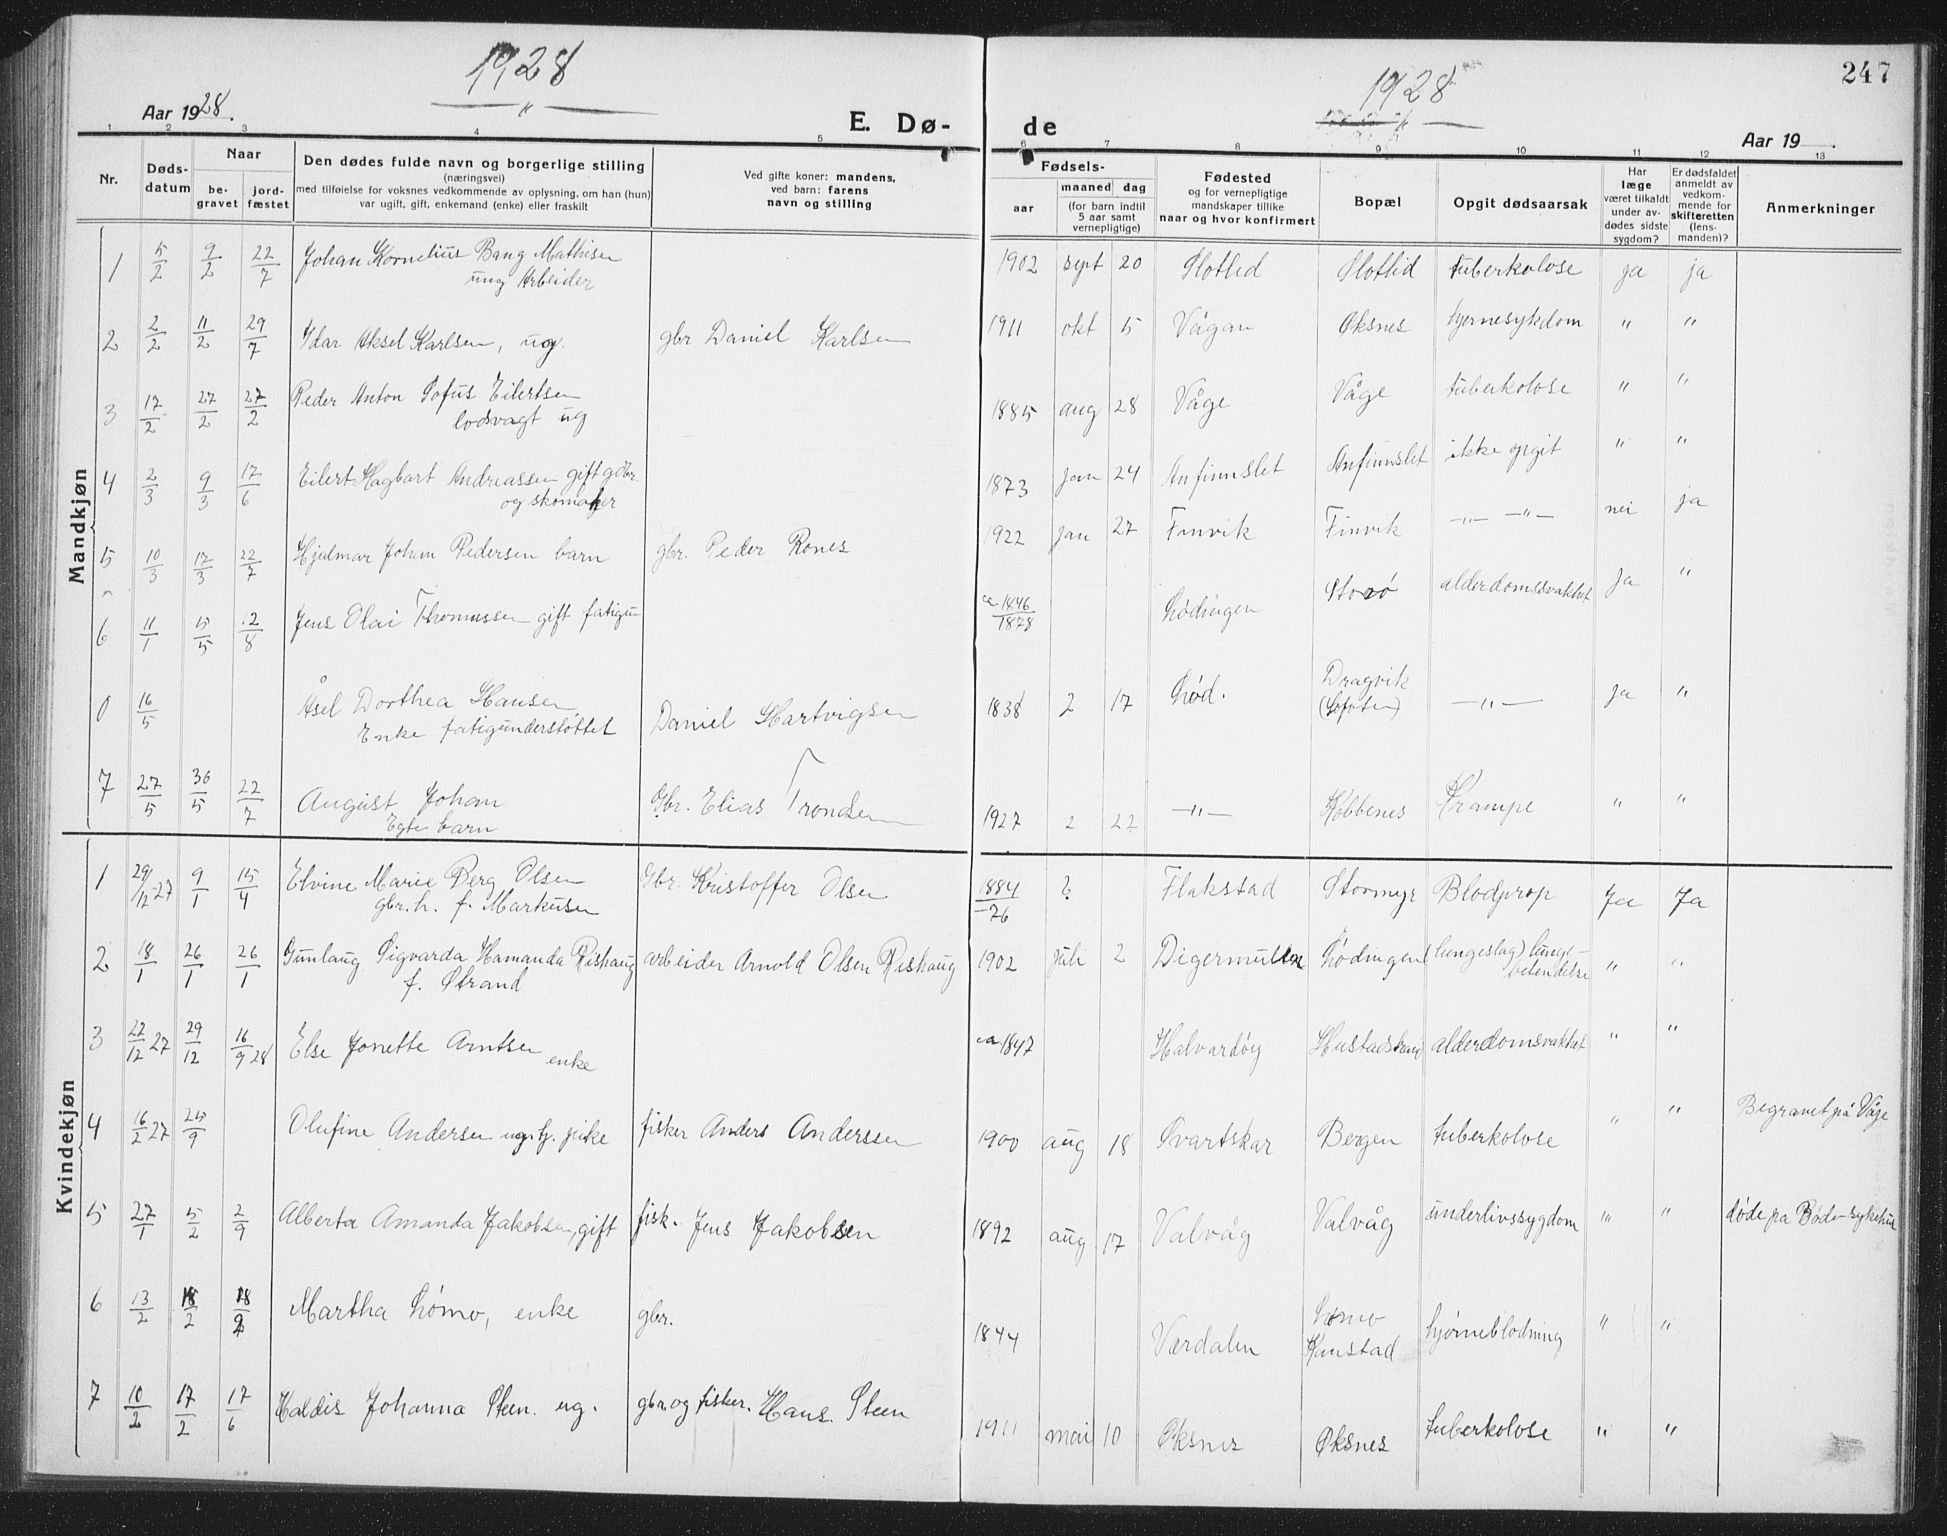 1928
1928
247
Aar 1928.
E. Dø-
de
Aar 19 .
1 2 3 4 5 6 7 8 9 10 11 12 13
Nr.
Døds-
datum
Naar
be-
gravet
jord-
fæstet
Den dødes fulde navn og borgerlige stilling
(næringsvei)
med tilføielse for voksnes vedkommende av oplysning, om han (hun)
var ugift, gift, enkemand (enke) eller fraskilt
Ved gifte koner: mandens,
ved barn: farens
navn og stilling
Fødsels-
aar
maaned dag
(for barn indtil
5 aar samt
vernepligtige)
Fødested
og for vernepligtige
mandskaper tillike
naar og hvor konfirmert
Bopæl
Opgit dødsaarsak
Har
læge
været tilkaldt
under av-
dødes sidste
sygdom?
Er dødsfaldet
anmeldt av
vedkom-
mende for
skifteretten
(lens-
manden)?
Anmerkninger
Mandkjøn
1 5/2 9/2 22/7 Johan Kornelius Bang Mathisen 1902 sept 20 Slotlid Slotlid tuberkolose ja ja
ung Arbeider
2 2/2 11/2 29/7 Idar Aksel Karlsen, ug. gbr Daniel Karlsen 1911 okt 5 Vågan Øksnes hjernesykdom " "
3 17/2 27/2 27/2 Peder Anton Sofus Eilertsen 1885 aug 28 Våge Våge tuberkolose " "
lodsvagt ug
4 2/3 9/3 17/6 Eilert Hagbart Andreassen gift gdbr. 1873 Jan 24 Anfinnslet Anfinnslet ikke opgit " "
og skomaker
5 10/3 17/3 22/7 Hjalmar Johan Pedersen barn gbr. Peder Rones 1922 Jan 27 Finvik Finvik —"— —"— nei ja
6 11/1 15/5 12/8 Jens Olai Thomassen gift fatigun ca 1846/1878 Lødingen Storø alderdomssvakhet Ja "
0 16/5 Åsel Dorthea Hansen Daniel Hartvigsen 1838 2 17 Lød. Dragvik —"— ja "
Enke fatigunderstøttet (Lofoten)
7 27/5 30/5 22/7 August Johan Gbr. Elias Trondsen 1927 2 22 —"— Kobbenes Krampe " "
Egte barn
Kvindekjøn
1 29/12-27 9/1 15/4 Elvine Marie Berg Olsen Gbr. Kristoffer Olsen 1884/76 ? Flakstad Stormyr Blodprop Ja Ja
gbr.h. f. Markusen
2 18/1 26/1 26/1 Gunlaug Sigvarda Hamanda Rishaug arbeider Arnold Olsen Rishaug 1902 juli 2 Digermulen Lødingen (lungeslag) lunge- " "
f. Strand betendelse
3 22/12 27 29/12 16/9 28 Else Jonette Arntsen enke ca 1847 Halvardøy Hustadstrand alderdomsvakhet " "
4 16/2 27 25/9 Olufine Andersen ug. tj. pike fisker Anders Anderssen 1900 aug 18 Svartskar Bergen tuberkolose " " Begravet på Våge
5 27/1 5/2 2/9 Alberta Amanda Jakobsen, gift fisk. Jens Jakobsen 1892 aug. 17 Valvåg Valvåg underlivssygdom " " døde pa Bodø-sykehus
6 13/2 18/2 18/2 Martha Lømo, enke gbr. 1844 Værdalen Lømo hjørneblodning " "
Kanstad
7 10/2 17/2 17/6 Haldis Johanna Steen. ug. gbr. og fisker. Hans. Steen 1911 mai 10 Øksnes Øksnes tuberkolose " "